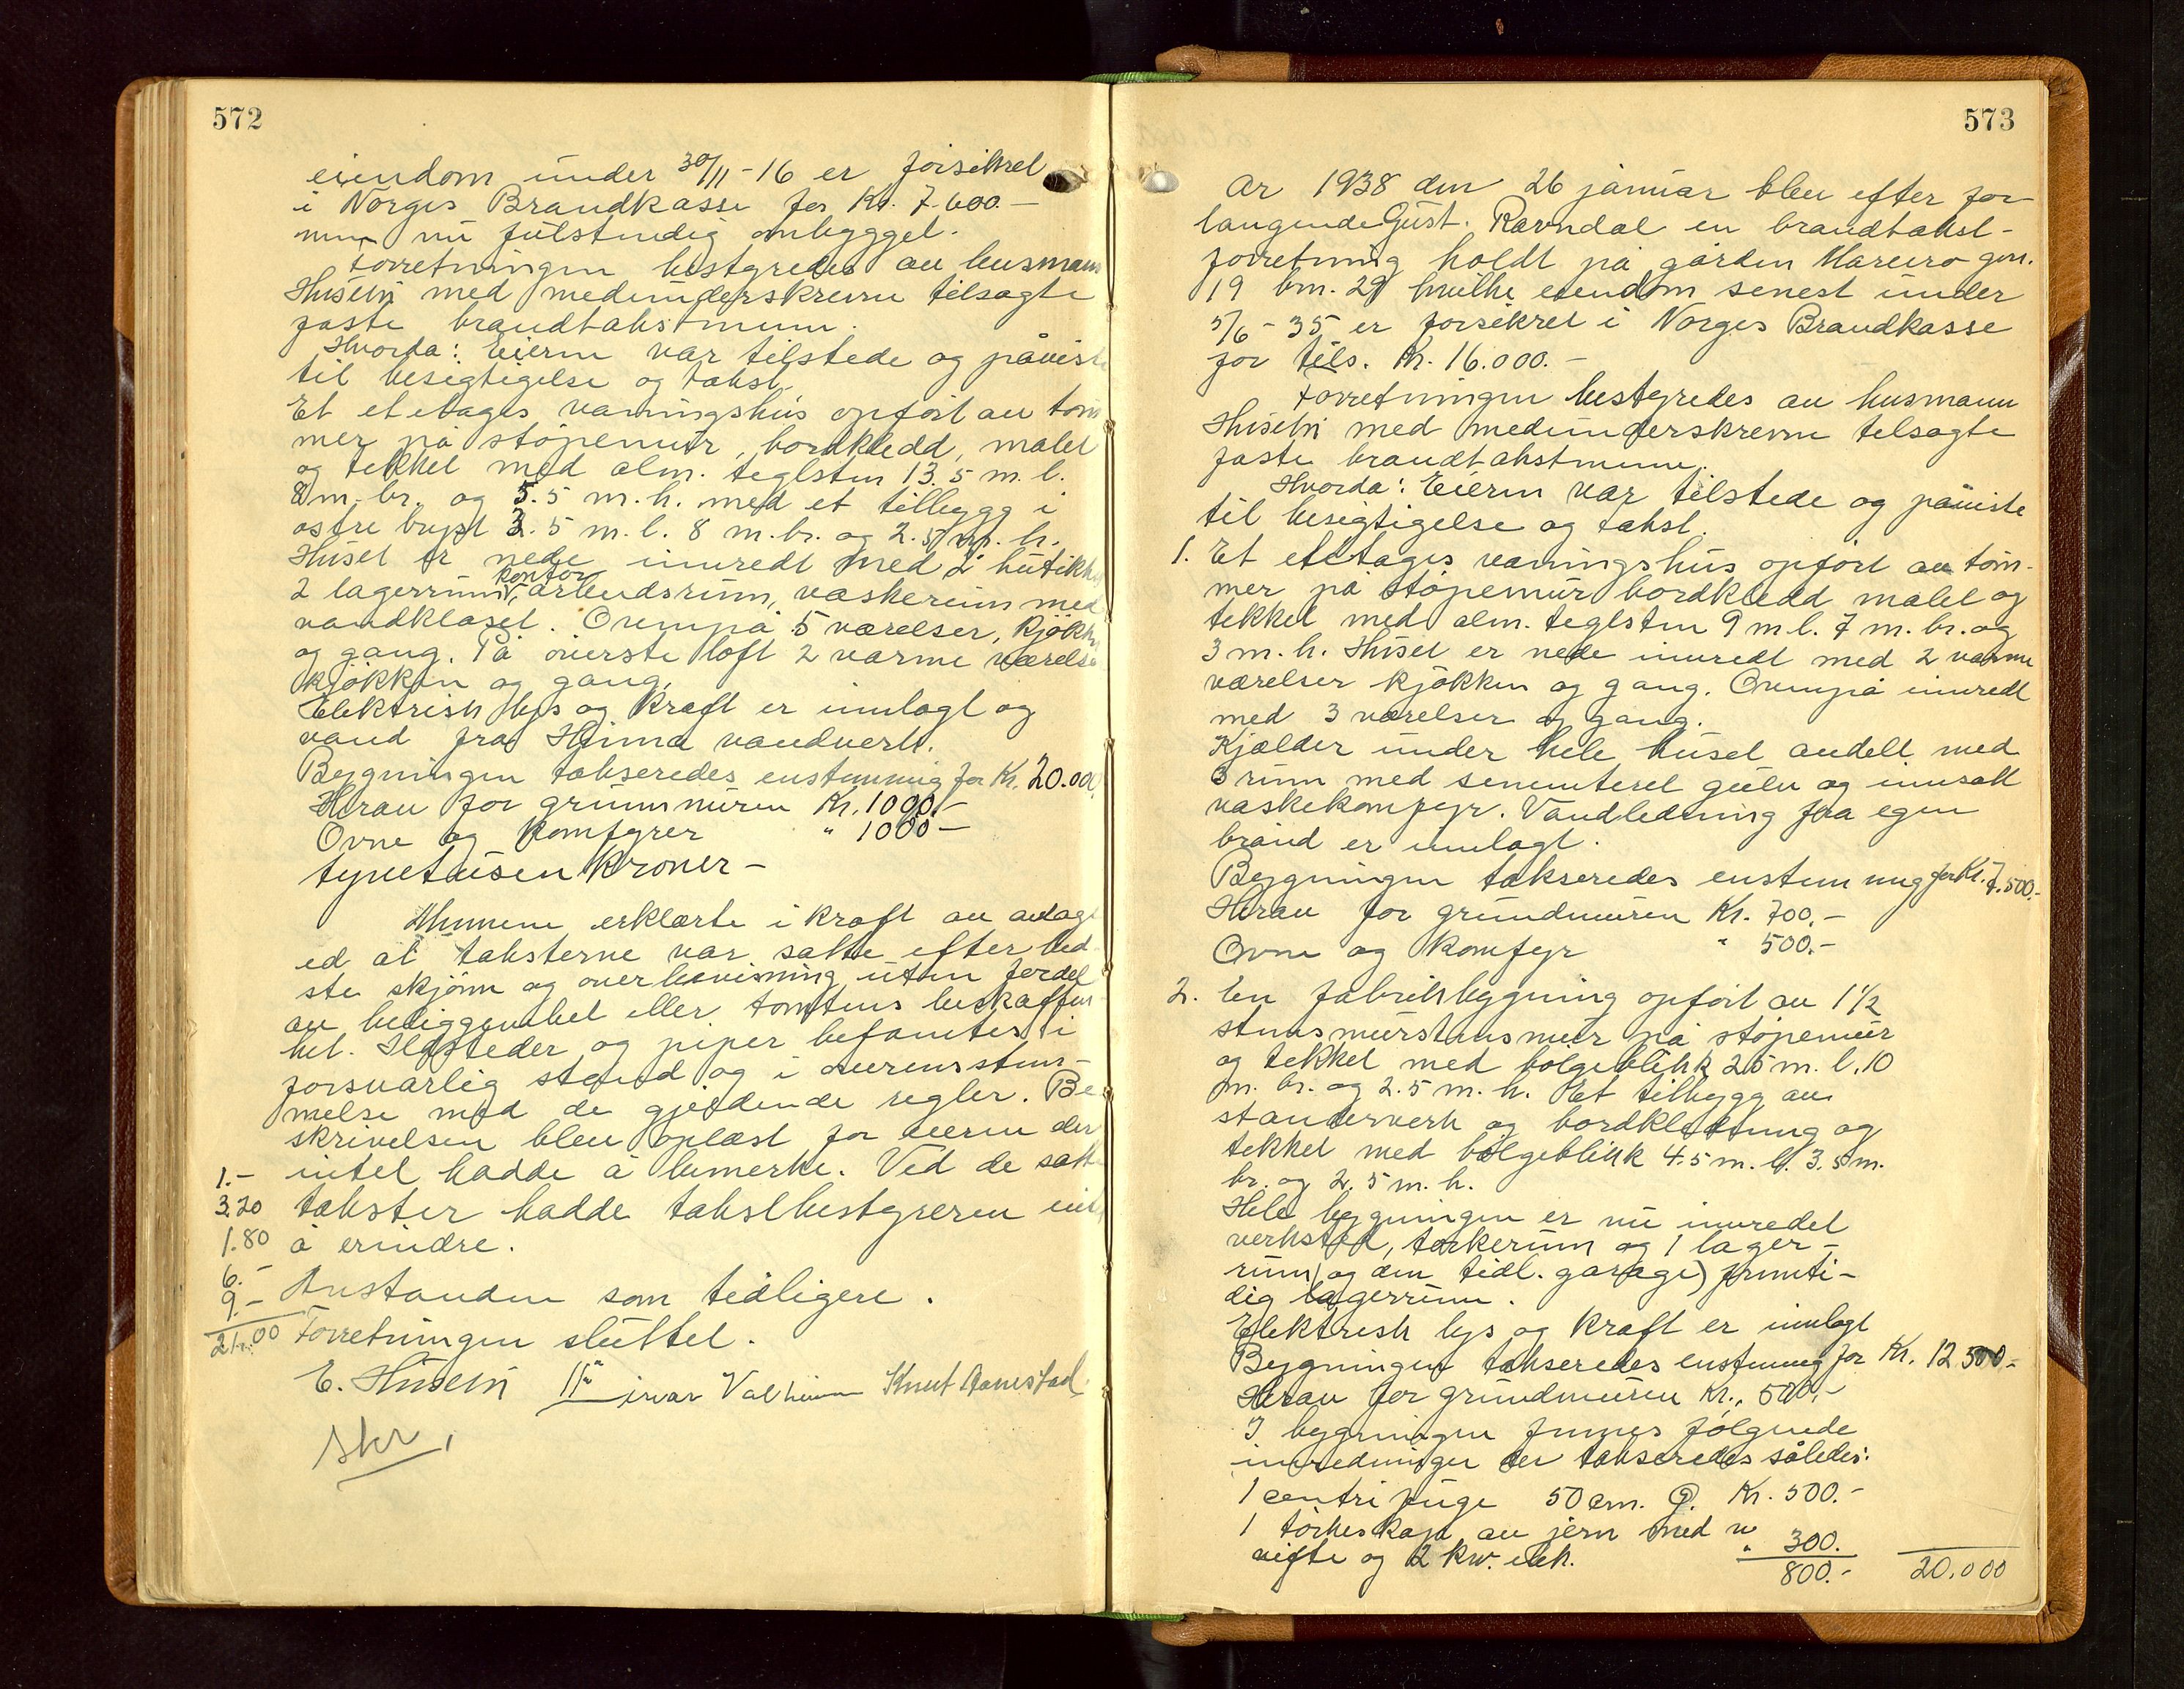 572
eiendom under 30/11-16 er forsikret
i Norges Brandkasse for Kr. 7.600.-
men nu fulstendig ombygget.
Forretningen bestyredes av husmann
Husebø med medunderskrevne tilsagte
faste brandtakstmenn.
Hvorda: Eieren var tilstede og påviste
til besigtigelse og takst.
Et etetages vaaningshus opført av tøm
mer på støpemur, bordkledd, malet
og tekket med alm. teglsten 13.5 m. l.
8 m. br. og 5.5 m. h. med et tilbygg i
østre 3.5 m. l. 8 m. br. og 2.5 m. h.
Huset er nede innredt med 2 butikker
kontor
2 lagerrum, arbeidsrum, vaskerum med
vandklosel. Ovenpå 5 værelser, kjøkken
og gang. På øverste loft 2 varme værelser
kjøkken og gang.
Elektrisk lys og kraft er innlagt og
vand fra vandverk.
Bygningen takseredes enstemmig for Kr. 20.000.
Herav for grunnmuren Kr. 1000.-
Ovne og komfyrer " 1000.-
tyvetusen kroner -
Mennene erklærte i kraft av avlagt
ed at taksterne var satte efter bed-
ste skjønn og overbevisning uten fordel
av beliggenhet eller tomtens beskaffen-
het. Ildsteder og piper befantes i
forsvarlig stand og i overensstem-
melse med de gjeldende regler. Be
skrivelsen blev oplæst for eieren der
1.- intet hadde å bemerke. Ved de satte
3.20 takster hadde takstbestyreren intet
1.80 å erindre.
6.-
9.- Avstanden som tidligere.
21.00 Forretningen sluttet.
E. Husebø Einar Valheim Knut Aanestad
Skr.
573
År 1938 den 26 januar blev efter for
langende Gust. Ravndal en brandtakst-
forretning holdt på gården Mareiro gnr.
19 bnr. 29 hvilke eiendom senest under
5/6-35 er forsekret i Norges Brandkasse
for tils. Kr. 16.000.-
Forretningen bestyredes av husmann
Husebø med medunderskrevne tilsagte
faste brandtakstmenn.
Hvorda: Eieren var tilstede og påviste
til besigtigelse og takst.
1. Et etetages vaaningshus opført av tøm-
mer på støpemur bordkledd malet og
tekket med alm. teglsten 9 m l. 7 m. br. og
3 m. h. Huset er nede innredt med 2 varme
værelser kjøkken og gang. Ovenpå innredt
med 3 værelser og gang.
Kjælder under hele huset avdelt med
3 rum med sementeret gulv og innsatt
vaskekomfyr. Vandledning fra egen
brønd er innlagt.
Bygningen takseredes enstemmig for Kr. 7.500.-
Herav for grundmuren Kr. 700.-
Ovne og komfyr " 500.-
2. En fabrikbygning opført av 1 1/2
stens murstensmur på støpemur
og tekket med bølgeblikk 25 m. l. 10
m. br. og 2.5 m. h. Et tilbygg av
standerverk og bordkledning og
tekket med bølgeblikk 4.5 m. l. 3.5 m.
br. og 2.5 m. h.
Hele bygningen er nu innredet
verksted, tørkerum og 1 lager-
rum (og den tidl. garage) fremti-
dig lagerrum.
Elektrisk lys og kraft er innlagt
Bygningen takseredes enstemmig for Kr. 12.500.-
Herav for grundmuren Kr. 500.-
I bygningen finnes følgende
innredninger der takseredes således:
1 centrifuge 50 cm. Kr. 500.-
1 tørkeskap av jern med
vifte og 2 kw. elek. " 300.
800.- 20.000